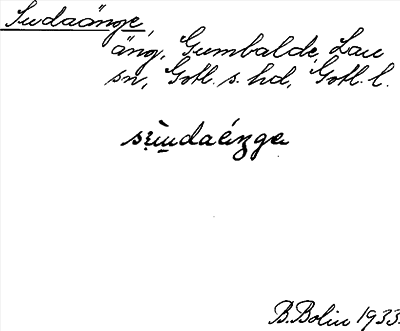 Sudaänge,
äng, Gumbalde, Lau
sn, Gotl. s. hd, Gotl. l.
B. Bolin 1933.